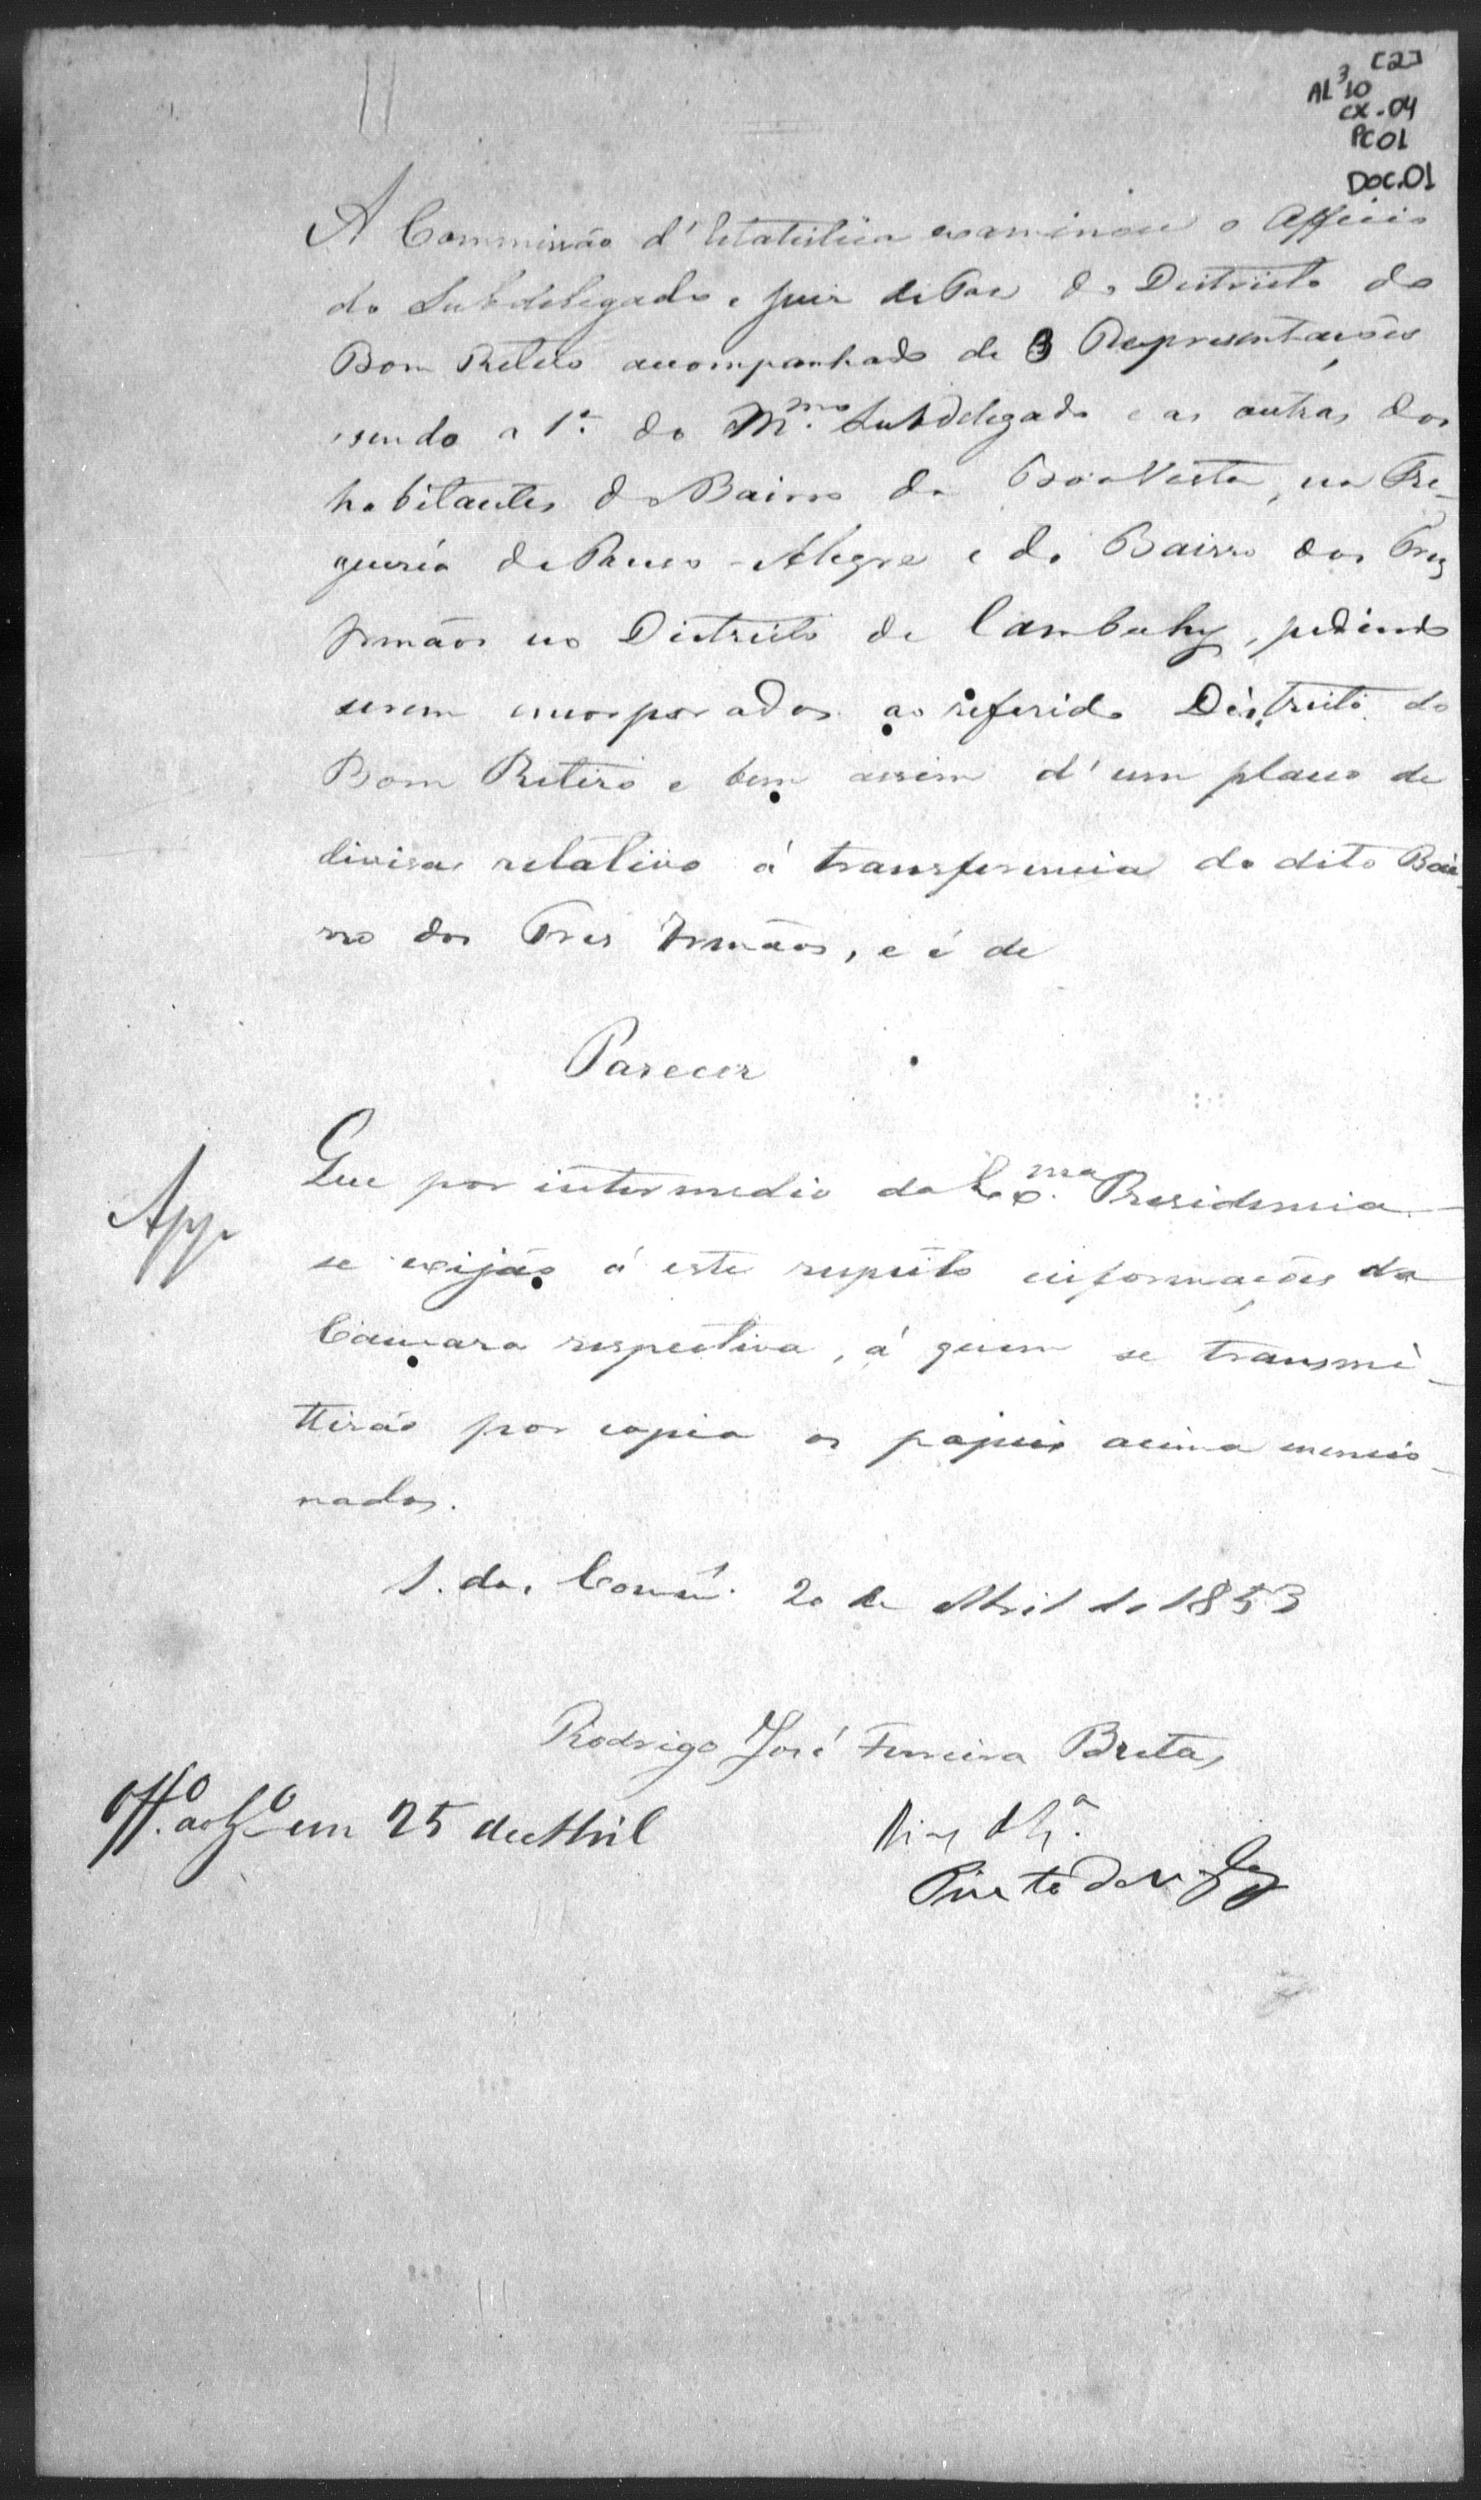 [2]
AL 3 10
CX-04
PC01
DOC.01
A Commissão d'Estatistica examinou o Officio
do Subdelegado e Juiz de Paz do Districto do
Bom Retiro acompanhado de 3 Representações
sendo a 1ª do Mmo. Subdelegado e as outras dos
habitantes do Bairro da Boa Vista, na Fre-
guesia de Pouso-Alegre e do Bairro dos Tres
Irmãos no Districto de Cambuhy, pedindo
serem encorporados ao referido Districto do
Bom Retiro e bem assim d'um plano de
divisas relativo á transferencia do dito Bair-
ro dos Tres Irmãos, e é de
Parecer
App.
Que por intermedio da Exma. Presidencia
se exijão á este respeito informações da
Camara respectiva, á quem se transmi-
ttirão por copia os papeis acima mencio-
nados.
S. das Comm. 20 de Abril de 1853
Rodrigo José Ferreira Bretas
Off.º ao em 25 de Abril